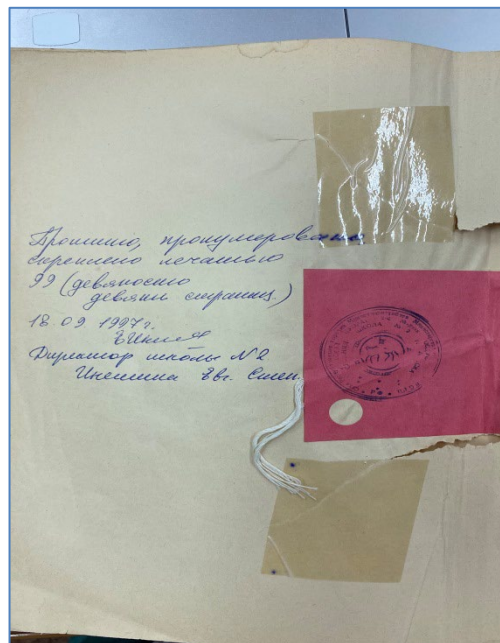 Прошито, пронумеровано
скреплено печатью
99 (девяносто
девять страниц.)
18 09 1997г.
Директор школы №2
Евг. Степ.